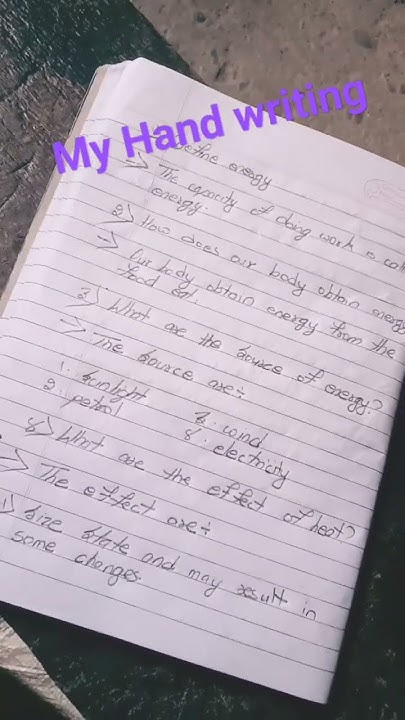 My Hand writing
define energy
=> The capacity of doing work is call
energy.
2) How does our body obtain energy
=> Our body obtain energy from the
food eat.
3) What are the source of energy?
=> The source are÷
1. sunlight 3. wind
2. petrol 8. electricity
8) What are the effect of heat?
=> The effect are÷
1) size state and may result in
some changes.